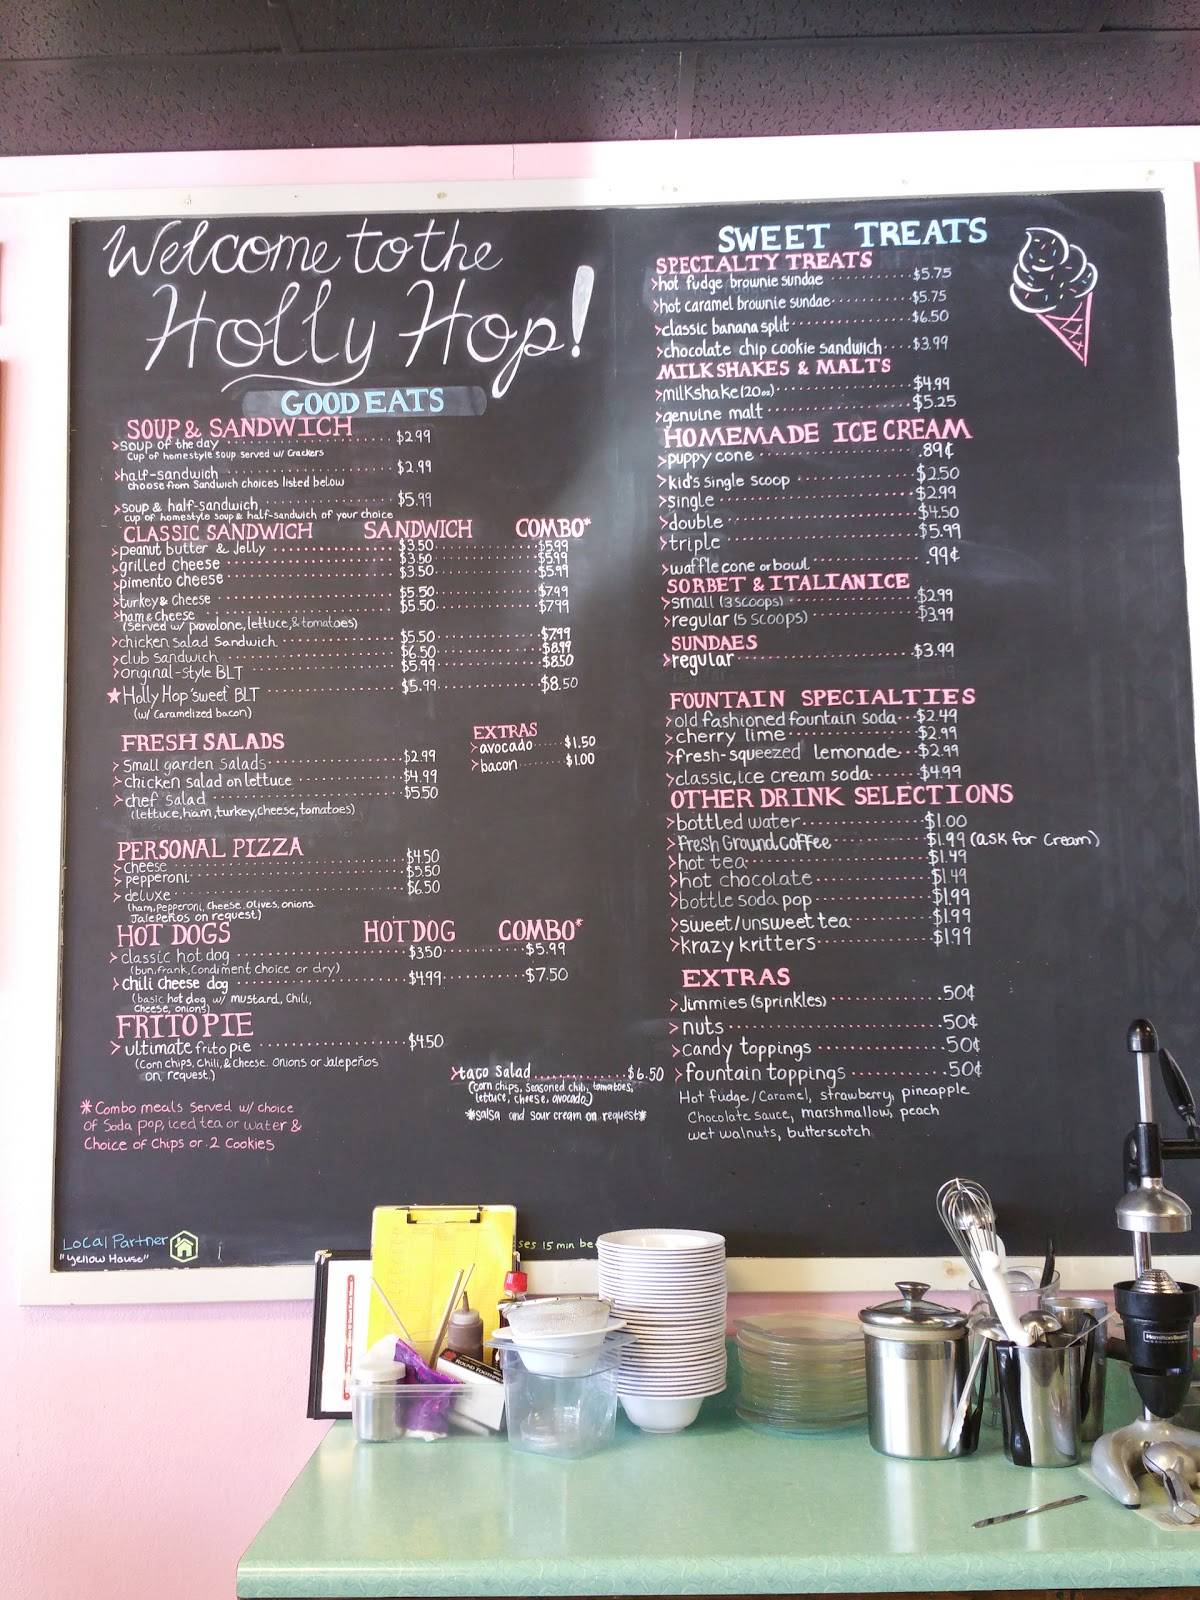 Welcome to the
Holly Hop!
GOOD EATS
SOUP & SANDWICH
>soup of the day $2.99
Cup of homestyle soup served w/ Crackers
>half-sandwich $2.99
choose from Sandwich choices listed below
>soup & half-sandwich $5.99
cup of homestyle soup & half-sandwich of your choice
CLASSIC SANDWICH SANDWICH COMBO*
>peanut butter & Jelly $3.50 $5.99
>grilled cheese $3.50 $5.99
>pimento cheese $3.50 $5.99
>turkey & cheese $5.50 $7.99
>ham & cheese $5.50 $7.99
(Served w/ provolone, lettuce, & tomatoes)
>chicken salad Sandwich $5.50 $7.99
>club sandwich $6.50 $8.99
>original-style BLT $5.99 $8.50
★Holly Hop 'sweet' BLT $5.99 $8.50
(w/ Caramelized bacon)
EXTRAS
>avocado $1.50
>bacon $1.00
FRESH SALADS
>Small garden Salads $2.99
>Chicken salad on lettuce $4.99
>chef salad $5.50
(lettuce, ham, turkey, cheese, tomatoes)
PERSONAL PIZZA
>cheese $4.50
>pepperoni $5.50
>deluxe $6.50
(ham, Pepperoni, Cheese, Olives, onions
Jalepeños on request)
HOT DOGS HOT DOG COMBO*
>classic hot dog $3.50 $5.99
(bun, frank, Condiment choice or dry)
>chili cheese dog $4.99 $7.50
(basic hot dog w/ mustard, Chili,
Cheese, onions)
FRITO PIE
>ultimate frito pie $4.50
(Corn chips, chili, & cheese. Onions or Jalepeños
on request.)
>taco Salad $6.50
(corn chips, Seasoned chili, tomatoes,
lettuce, cheese, avocado)
*salsa and sour cream on request*
*Combo meals Served w/ choice
of Soda pop, iced tea or water &
Choice of Chips or 2 Cookies
Local Partner
"Yellow House"
ses 15 min be
SWEET TREATS
SPECIALTY TREATS
>hot fudge brownie sundae $5.75
>hot caramel brownie sundae $5.75
>classic banana split $6.50
>chocolate chip cookie sandwich $3.99
MILKSHAKES & MALTS
>milkshake (20oz) $4.99
>genuine malt $5.25
HOMEMADE ICE CREAM
>puppy cone .89¢
>kid's single scoop $2.50
>single $2.99
>double $4.50
>triple $5.99
>waffle cone or bowl .99¢
SORBET & ITALIAN ICE
>small (3 scoops) $2.99
>regular (5 scoops) $3.99
SUNDAES
>regular $3.99
FOUNTAIN SPECIALTIES
>old fashioned fountain soda $2.49
>cherry lime $2.99
>fresh-squeezed lemonade $2.99
>classic, ice cream soda $4.99
OTHER DRINK SELECTIONS
>bottled water $1.00
>Fresh Ground Coffee $1.99 (ask for Cream)
>hot tea $1.49
>hot chocolate $1.49
>bottle soda pop $1.99
>sweet/unsweet tea $1.99
>krazy kritters $1.99
EXTRAS
>Jimmies (sprinkles) .50¢
>nuts .50¢
>candy toppings .50¢
>fountain toppings .50¢
Hot fudge/Caramel, strawberry, pineapple
Chocolate sauce, marshmallow, peach
wet walnuts, butterscotch
Hamilton Beach